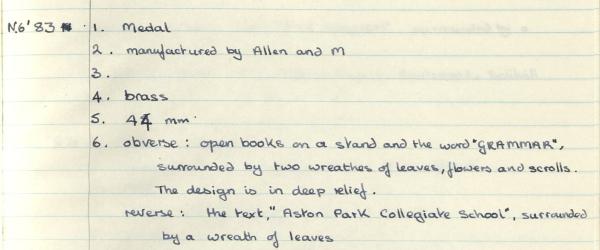 N6'83 1. Medal
2. manufactured by Allen and M
3.
4. brass
5. 44 mm
6. obverse : open books on a stand and the word "GRAMMAR",
surrounded by two wreathes of leaves, flowers and scrolls.
The design is in deep relief.
reverse : the text, "Aston Park Collegiate School", surrounded
by a wreath of leaves